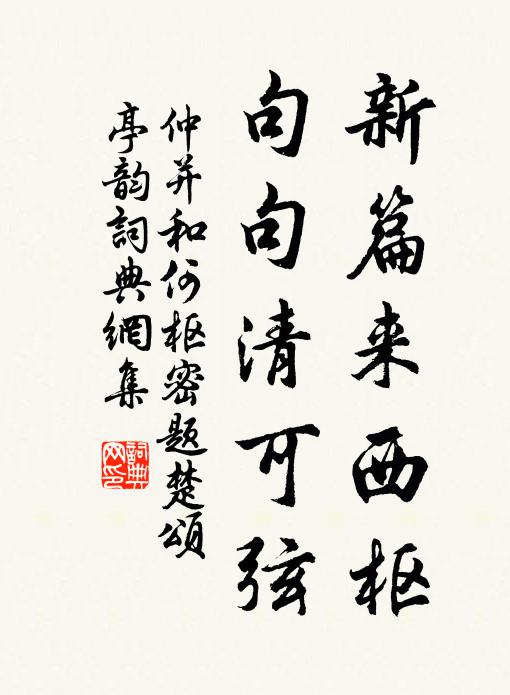 新篇来西枢
句句清可弦
仲并和何枢密题楚颂
亭韵詞典網集
詞典网印